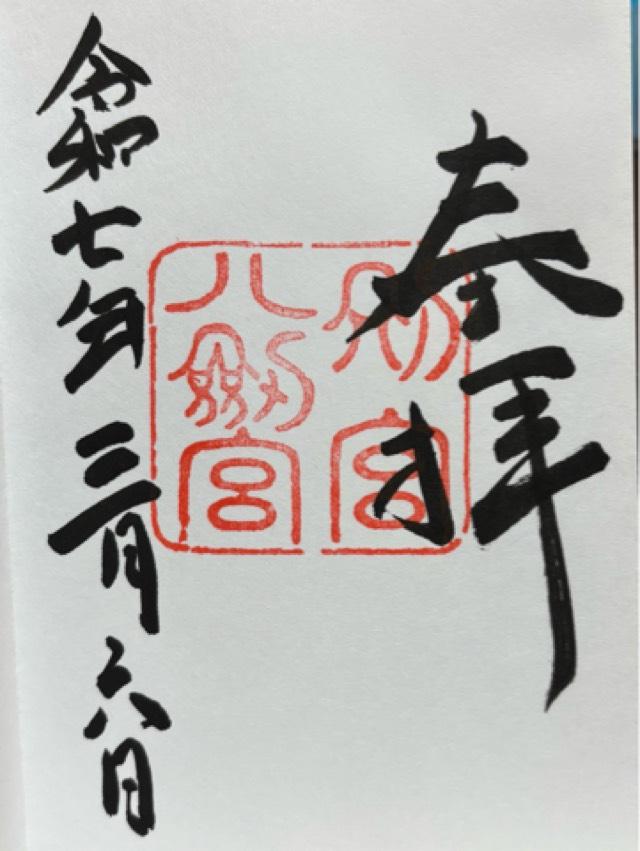 奉拝
別宮
八劍宮
令和七年三月六日